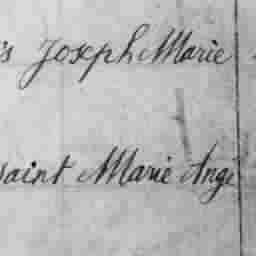 is Joseph Marie
saint Marie Ange